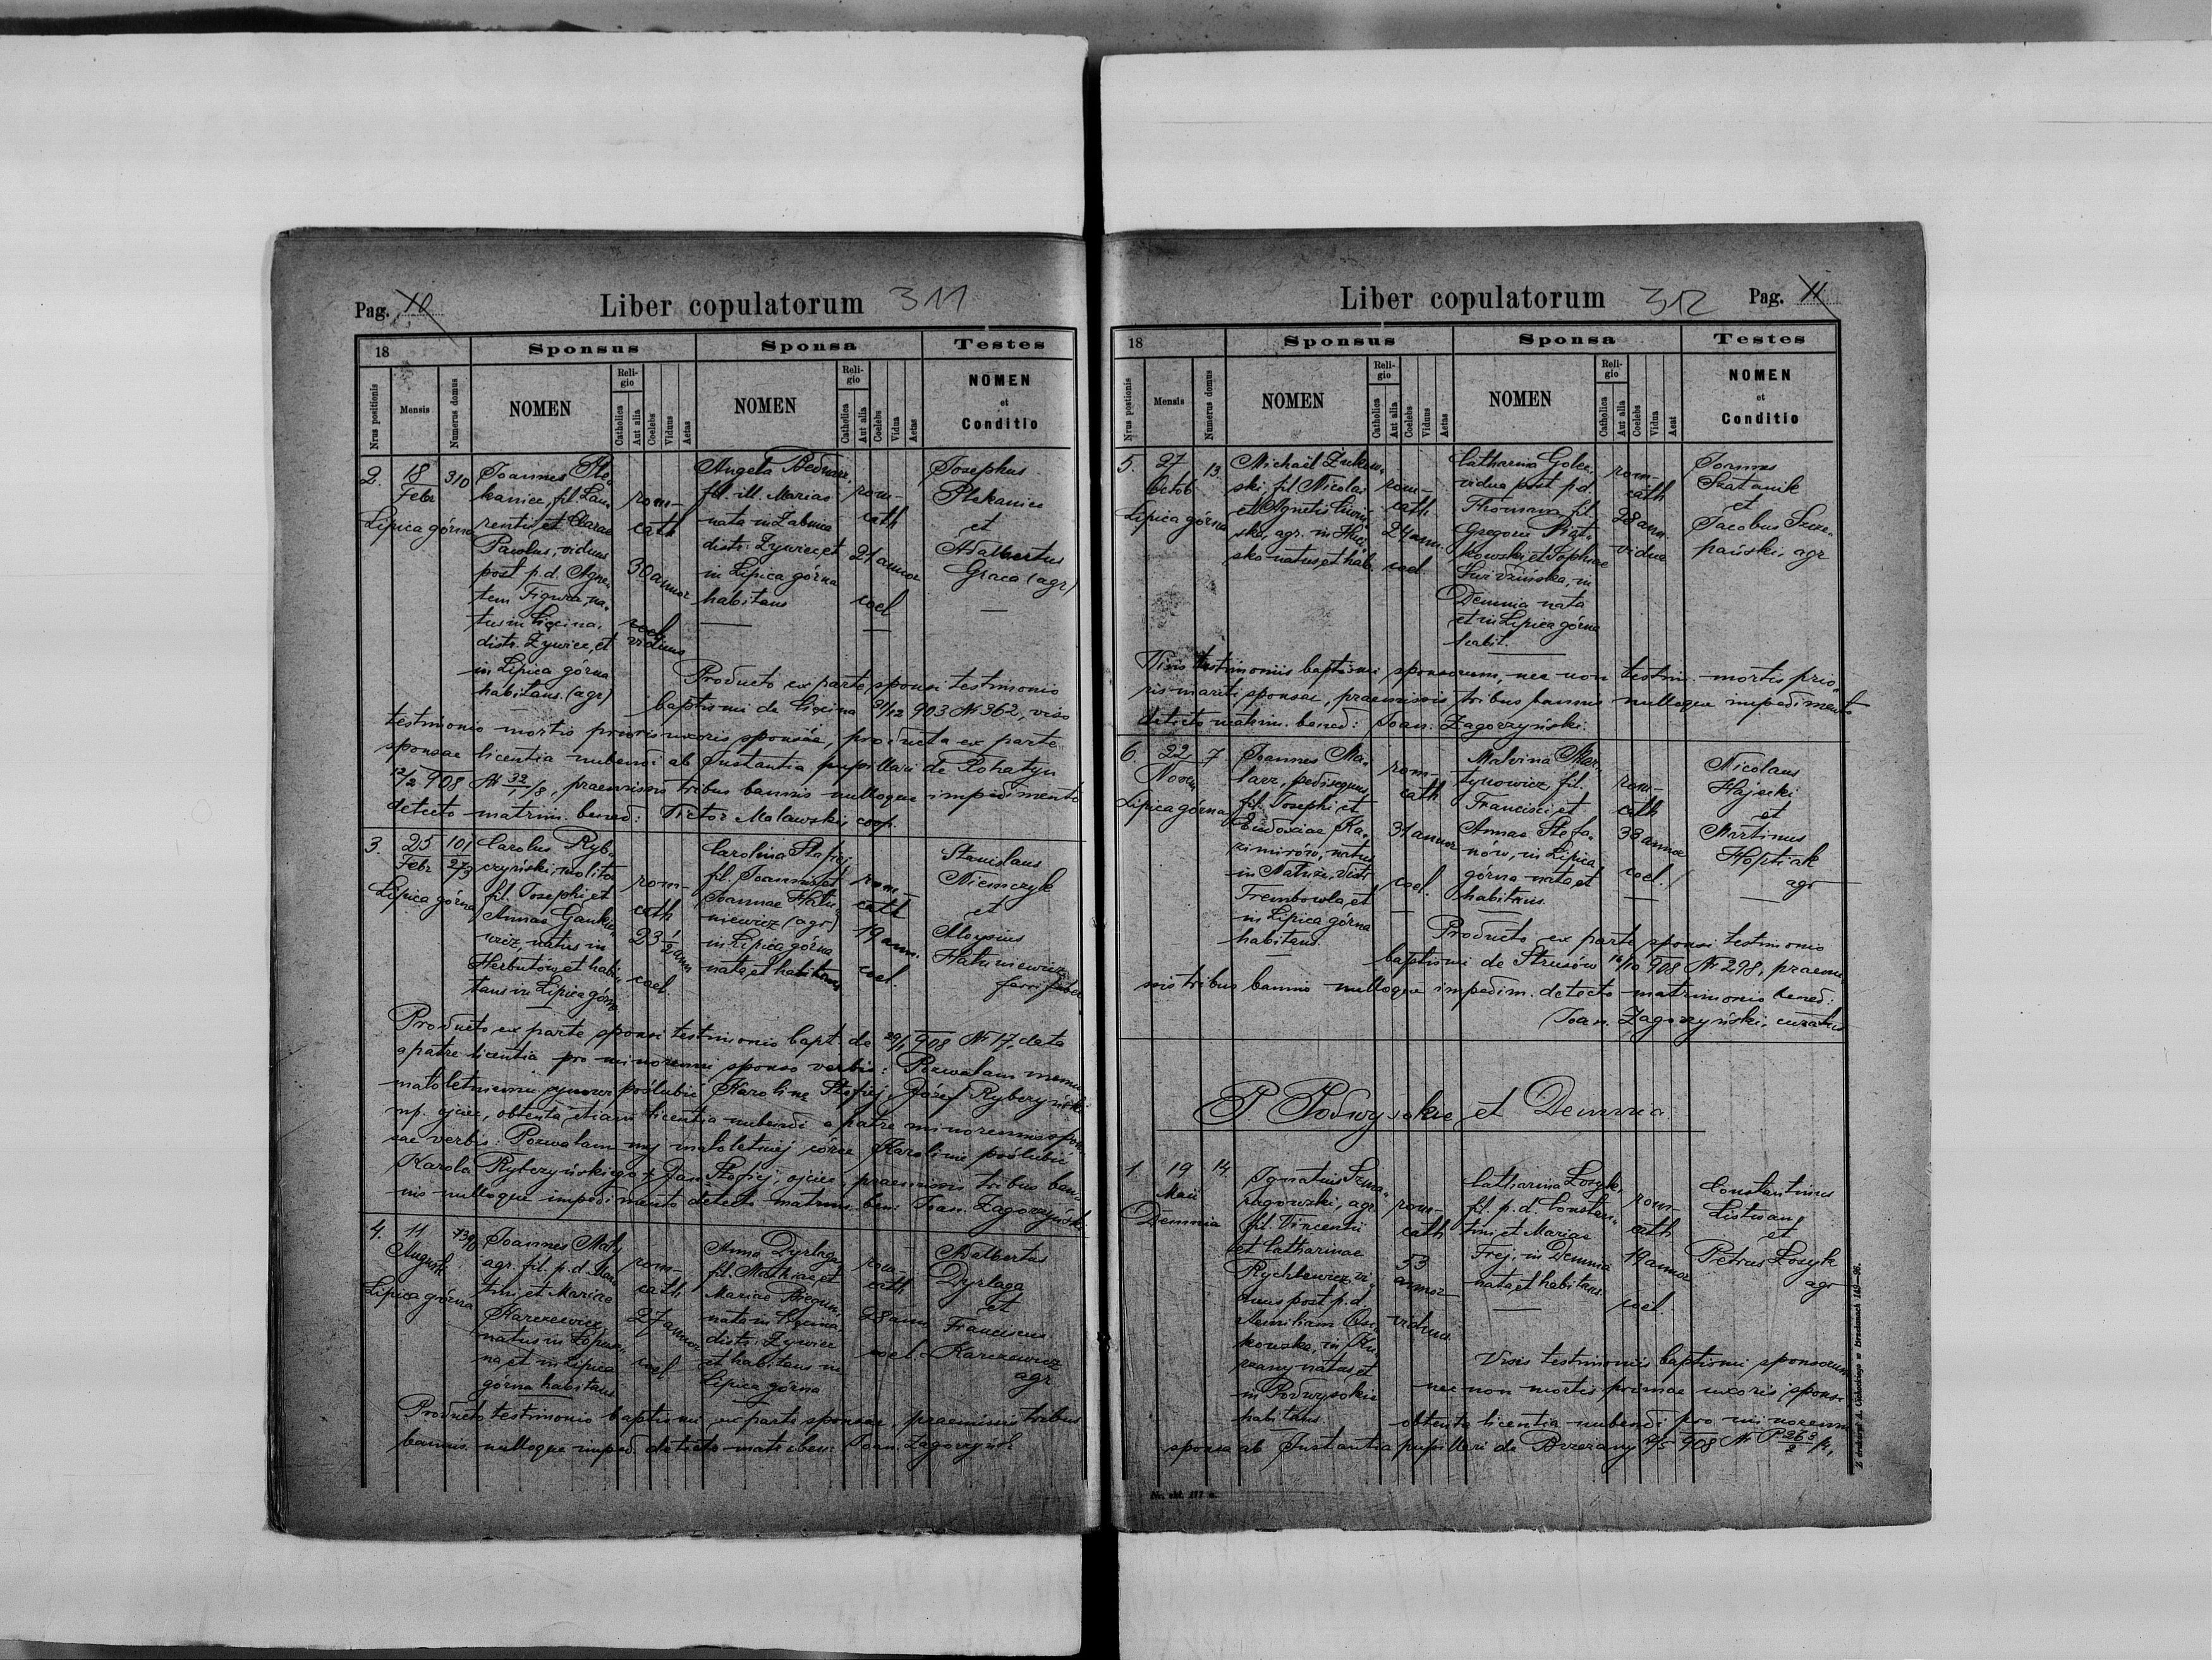 Pag. 10
Liber copulatorum 311
18
Sponsus
Sponsa
Testes
Nrus positionis
Mensis
Numerus domus
NOMEN
Religio
Catholica
Aut alia
Coelebs
Viduus
Aetas
NOMEN
Religio
Catholica
Aut alia
Coelebs
Vidua
Aetas
NOMEN
et
Conditio
2. 18 Febr 310
Lipica górna
Joannes Ple
kaniec, fil. Lau
rentii et Clarae
Pawlus, viduus
post p.d. Agne
tem Figura, na
tus in Ligina,
distr. Żywiec, et
in Lipica górna
habitans. (agr)
rom-
cath
30 annor
coel
viduus
Angela Bednarz,
fil. ill. Mariae
nata in Żabnica
distr: Żywiec et
in Lipica górna
habitans
rom-
cath
21 annor
coel
Josephus
Plekaniec
et
Adalbertus
Graca (agr)
Producto ex parte sponsi testimonio
baptismi de Ligina 31/12 903 № 362, viso
testimonio mortis prioris uxoris sponsae, producta ex parte
sponsae licentia nubendi ab Instantia pupillari de Rohatyn
12/2 908 № 32/1/8, praemissis tribus bannis nulloque impedimento
detecto matrim. bened: Victor Malawski coop.
3. 25 Febr 101 273
Lipica górna
Carolus Ryb
czyński, molitor
fil. Josephi et
Annae Gankie
wicz, natus in
Herbutów et habi
tans in Lipica górna
rom-
cath
23 1/2 ann
coel.
Carolina Stafiej
fil. Joannis et
Joannae Hału
niewicz (agr)
in Lipica górna
nata et habitans
rom-
cath
19 ann.
coel.
Stanislaus
Niemczyk
et
Aloysius
Hałuniewicz
ferri faber
Producto ex parte sponsi testimonio bapt. de 29/1 908 № 17, data
a patre licentia pro minorenni sponso verbis: Pozwalam memu
małoletniemu synowi poślubić Karolinę Stafiej, Józef Rybczyński
mp. ojciec, obtenta etiam licentia nubendi a patre minorennis spon
sae verbis: Pozwalam mej małoletniej córce Karolinie poślubić
Karola Rybczyńskiego + Jan Stafiej, ojciec, praemissis tribus ban
nis nulloque impedimento detecto matrim. ben: Joan. Zagorzyński
4. 11 August
Lipica górna
Joannes Mały
agr. fil. p.d. Mar
tini et Mariae
Karczewicz,
natus in Łopusz
na et in Lipica
górna habitans
rom-
cath
27 annor
coel
Anna Dyrlaga
fil. Mathiae et
Mariae Biegun,
nata in Ligina,
distr: Żywiec
et habitans in
Lipica górna
rom-
cath
28 ann
coel
Adalbertus
Dyrlaga
et
Franciscus
Karczewicz
agr
Producto testimonio baptismi ex parte sponsae, praemissis tribus
bannis nulloque imped. detecto matr. ben: Joan. Zagorzyński
Liber copulatorum 312
Pag. 11
18
Sponsus
Sponsa
Testes
Nrus positionis
Mensis
Numerus domus
NOMEN
Religio
Catholica
Aut alia
Coelebs
Viduus
Aetas
NOMEN
Religio
Catholica
Aut alia
Coelebs
Vidua
Aeat
NOMEN
et
Conditio
5. 27 Octob 13.
Lipica górna
Michaël Żukow
ski fil. Nicolai
et Agnetis
ska, agr. in
sko natus et hab.
rom-
cath
24 ann.
coel.
Catharina Golec,
vidua post p.d.
Thomam, fil.
Gregorii Piąt
kowski et Sophiae
Świdzińska, in
Demnia nata
et in Lipica górna
habit.
rom-
cath
28 ann
vidua
Joannes
Szatanik
et
Jacobus Szcze
pański, agr
Visis testimoniis baptismi sponsorum, nec non testim. mortis prio
ris mariti sponsae, praemissis tribus bannis nulloque impedimento
detecto matrim. bened: Joan. Zagorzyński.
6. 22 Novem 7
Lipica górna
Joannes Ma
larz, pedisequus
fil. Josephi et
Eudoxiae Ka
zimirów, natus
in Nałuże, distr.
Trembowla, et
in Lipica górna
habitans.
rom-
cath
31 annor
coel.
Malvina Mar
tynowicz, fil.
Francisci et
Annae Stefa
nów, in Lipica
górna nata et
habitans.
rom-
cath
38 annor
coel.
Nicolaus
Hajecki
et
Martinus
Hoptiak
agr
Producto ex parte sponsi testimonio
baptismi de Strusów 16/10 908 № 298, praemis
sis tribus bannis nulloque impedim. detecto matrimonio bened:
Joan. Zagorzyński, curatus
P. Podwysokie et Demnia.
1. 19 Maii 14
Demnia
Ignatius Szma
ragowski, agr.
fil. Vincentii
et Catharinae
Rychlewicz, vi
duus post p.d.
Aemiliam
kowska, in
natus, et
in Podwysokie
habitans.
rom-
cath
53
annor
viduus
Catharina Łosyk,
fil. p.d. Constan
tini et Mariae
Frej, in Demnia
nata et habitans.
rom-
cath
19 annor
coel.
Constantinus
Listwan
et
Petrus Łosyk
agr
Visis testimoniis baptismi sponsorum
nec non mortis primae uxoris sponsi
obtenta licentia nubendi pro minorenni
sponsa ab Instantia pupillari de Brzeżany 2/5 908 № P 263/2 /4,
Nr. skł. 177 a.
Z drukarni A. Cichockiego w Brzeżanach